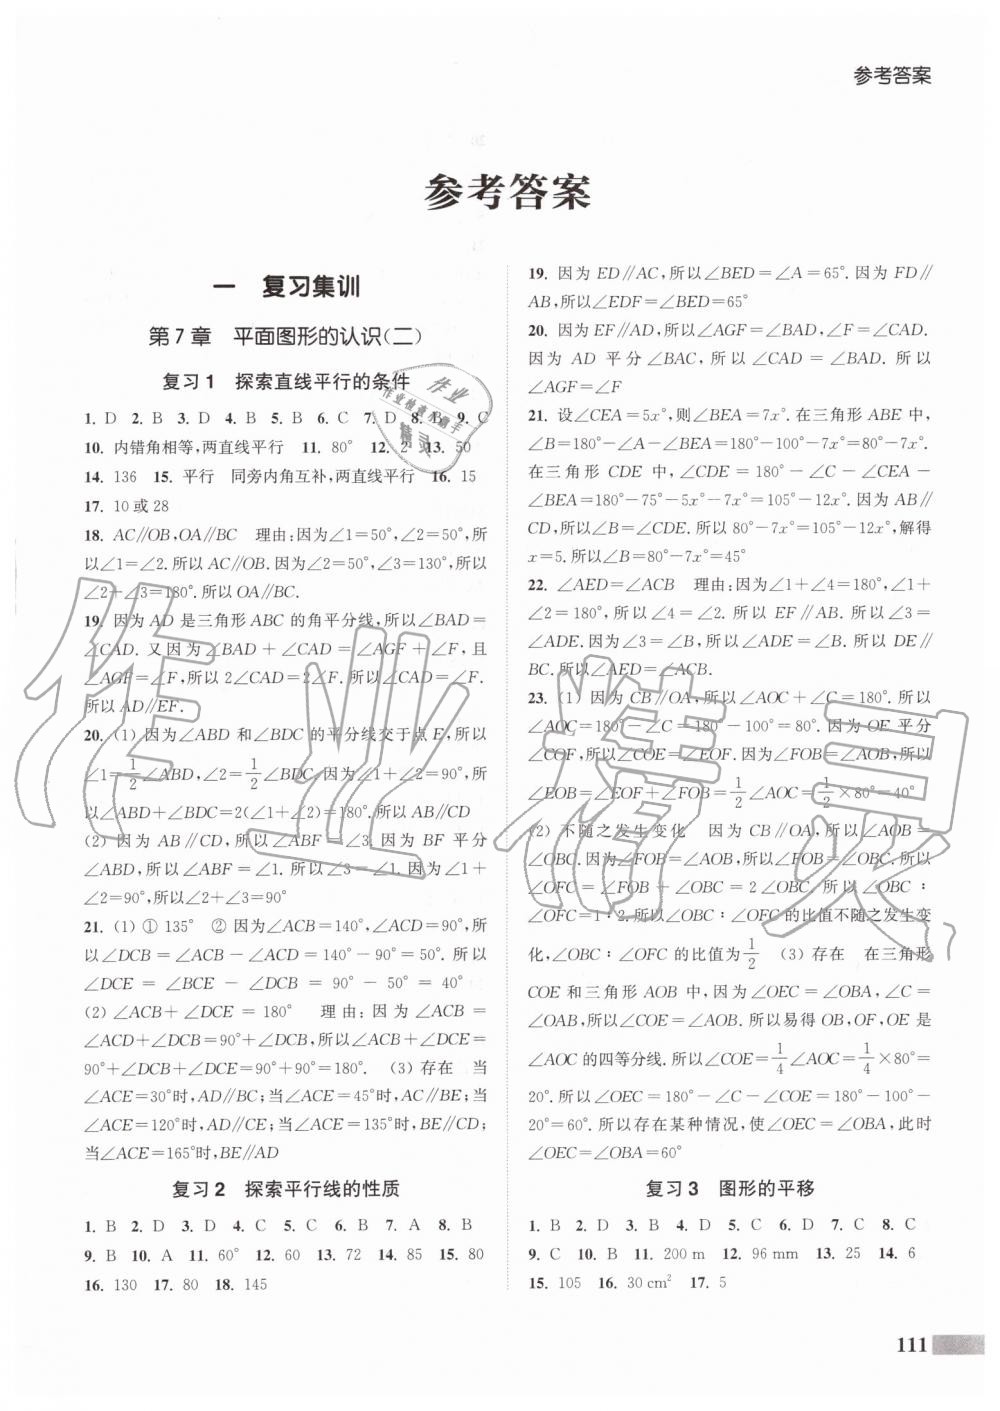 参考答案
参考答案
一 复习集训
第7章 平面图形的认识(二)
复习1 探索直线平行的条件
1. D 2. B 3. D 4. B 5. B 6. C 7. D 8. B 9. C
10. 内错角相等,两直线平行 11. 80° 12. 2 13. 50
14. 136 15. 平行 同旁内角互补,两直线平行 16. 15
17. 10或28
18. AC∥OB,OA∥BC 理由:因为∠1=50°,∠2=50°,所
以∠1=∠2.所以AC∥OB.因为∠2=50°,∠3=130°,所以
∠2+∠3=180°.所以OA∥BC.
19. 因为AD是三角形ABC的角平分线,所以∠BAD=
∠CAD.又因为∠BAD+∠CAD=∠AGF+∠F,且
∠AGF=∠F,所以2∠CAD=2∠F.所以∠CAD=∠F.
所以AD∥EF.
20. (1) 因为∠ABD和∠BDC的平分线交于点E,所以
∠1=1/2∠ABD,∠2=1/2∠BDC.因为∠1+∠2=90°,所
以∠ABD+∠BDC=2(∠1+∠2)=180°.所以AB∥CD
(2) 因为AB∥CD,所以∠ABF=∠3.因为BF平分
∠ABD,所以∠ABF=∠1.所以∠3=∠1.因为∠1+
∠2=90°,所以∠2+∠3=90°
21. (1) ① 135° ② 因为∠ACB=140°,∠ACD=90°,所
以∠DCB=∠ACB-∠ACD=140°-90°=50°.所以
∠DCE=∠BCE-∠DCB=90°-50°=40°
(2) ∠ACB+∠DCE=180° 理由:因为∠ACB=
∠ACD+∠DCB=90°+∠DCB,所以∠ACB+∠DCE=
90°+∠DCB+∠DCE=90°+90°=180°. (3) 存在 当
∠ACE=30°时,AD∥BC;当∠ACE=45°时,AC∥BE;当
∠ACE=120°时,AD∥CE;当∠ACE=135°时,BE∥CD;
当∠ACE=165°时,BE∥AD
复习2 探索平行线的性质
1. B 2. D 3. D 4. C 5. C 6. B 7. A 8. B
9. B 10. A 11. 60° 12. 60 13. 72 14. 85 15. 80
16. 130 17. 80 18. 145
19. 因为ED∥AC,所以∠BED=∠A=65°.因为FD∥
AB,所以∠EDF=∠BED=65°
20. 因为EF∥AD,所以∠AGF=∠BAD,∠F=∠CAD.
因为AD平分∠BAC,所以∠BAD=∠CAD.所以
∠AGF=∠F
21. 设∠CEA=5x°,则∠BEA=7x°.在三角形ABE中,
∠B=180°-∠A-∠BEA=180°-100°-7x°=80°-7x°.
在三角形CDE中,∠CDE=180°-∠C-∠CEA-
∠BEA=180°-75°-5x°-7x°=105°-12x°.因为AB∥
CD,所以∠B=∠CDE.所以80°-7x°=105°-12x°,解得
x=5.所以∠B=80°-7x°=45°
22. ∠AED=∠ACB 理由:因为∠1+∠4=180°,∠1+
∠2=180°,所以∠4=∠2.所以EF∥AB.所以∠3=
∠ADE.因为∠3=∠B,所以∠ADE=∠B.所以DE∥
BC.所以∠AED=∠ACB.
23. (1) 因为CB∥OA,所以∠AOC+∠C=180°.所以
∠AOC=180°-∠C=180°-100°=80°.因为OE平分
∠COF,所以∠COE=∠EOF.因为∠FOB=∠AOB,所以
∠EOB=∠EOF+∠FOB=1/2∠AOC=1/2×80°=40°
(2) 不随之发生变化 因为CB∥OA,所以∠AOB=
∠OBC.因为∠FOB=∠AOB,所以∠FOB=∠OBC.所以
∠OFC=∠FOB+∠OBC=2∠OBC.所以∠OBC∶
∠OFC=1∶2.所以∠OBC∶∠OFC的比值不随之发生变
化,∠OBC∶∠OFC的比值为1/2 (3) 存在 在三角形
COE和三角形AOB中,因为∠OEC=∠OBA,∠C=
∠OAB,所以∠COE=∠AOB.所以易得OB,OF,OE是
∠AOC的四等分线.所以∠COE=1/4∠AOC=1/4×80°=
20°.所以∠OEC=180°-∠C-∠COE=180°-100°-
20°=60°.所以存在某种情况,使∠OEC=∠OBA,此时
∠OEC=∠OBA=60°
复习3 图形的平移
1. B 2. D 3. A 4. B 5. A 6. D 7. C 8. C
9. C 10. B 11. 200 m 12. 96 mm 13. 25 14. 6
15. 105 16. 30 cm² 17. 5
111
作业精灵